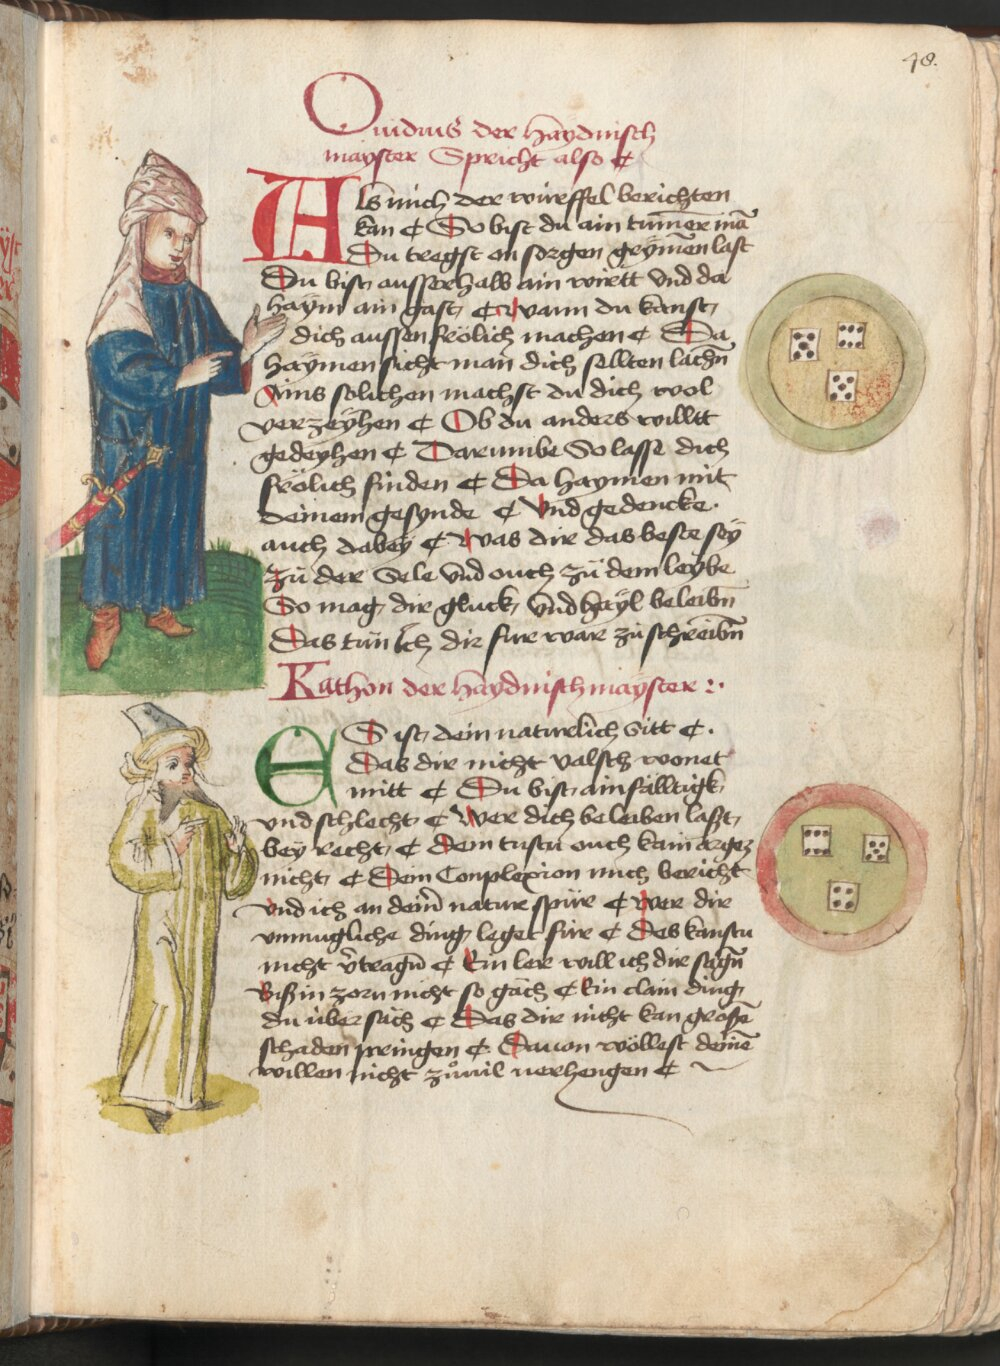 48.
Ouidius der haydnisch
mayster Spricht also ¢
Als mich der wirffel berichten
kan ¢ So bist du ain tumer mā
Du tregst on sorgen grymen last
Du bist ausserhalb ain wirtt vnd da
haym ain gast ¢ wann du kanst
dich aussen frölich machen ¢ Da
haymen sicht man dich sellten lachn̄
Ains solichen machst du dich wol
verzeyhen ¢ Ob du anders willtt
gedeyhen ¢ Darumbe So lasse dich
frölich finden ¢ Da haymen mit
deinem gesynde ¢ Vnd gedencke
auch dabey ¢ was dir das beste sey
zů der Sele vnd ouch zů dem leybe
So mag dir gluck vnd hayl beleibn̄
Das tün Ich dir fur war zů schreibn̄
Kathon der haydnisch mayster :.
ES ist dein naturlich Sitt ¢ .
Das dir nicht valsch wonet
mitt ¢ Du bist ainfälltigk
vnd schlecht ¢ Wer dich beleiben laßt
bey recht ¢ Dem tustu ouch kain argez
nicht ¢ Dein Conplexion mich bericht
vnd ich an dein̄ natur spür ¢ wer dir
vnmugliche ding leget für ¢ Des kanstu
nicht v̄tragn̄ ¢ Ein ler will ich dir sagn̄
Biß in zorn nicht so gäch ¢ Ein clain ding
du über säch ¢ Das dir nicht kan grosse
schaden pringen ¢ Dauon wöllest deinē
willen nicht zůuil verhengen ¢